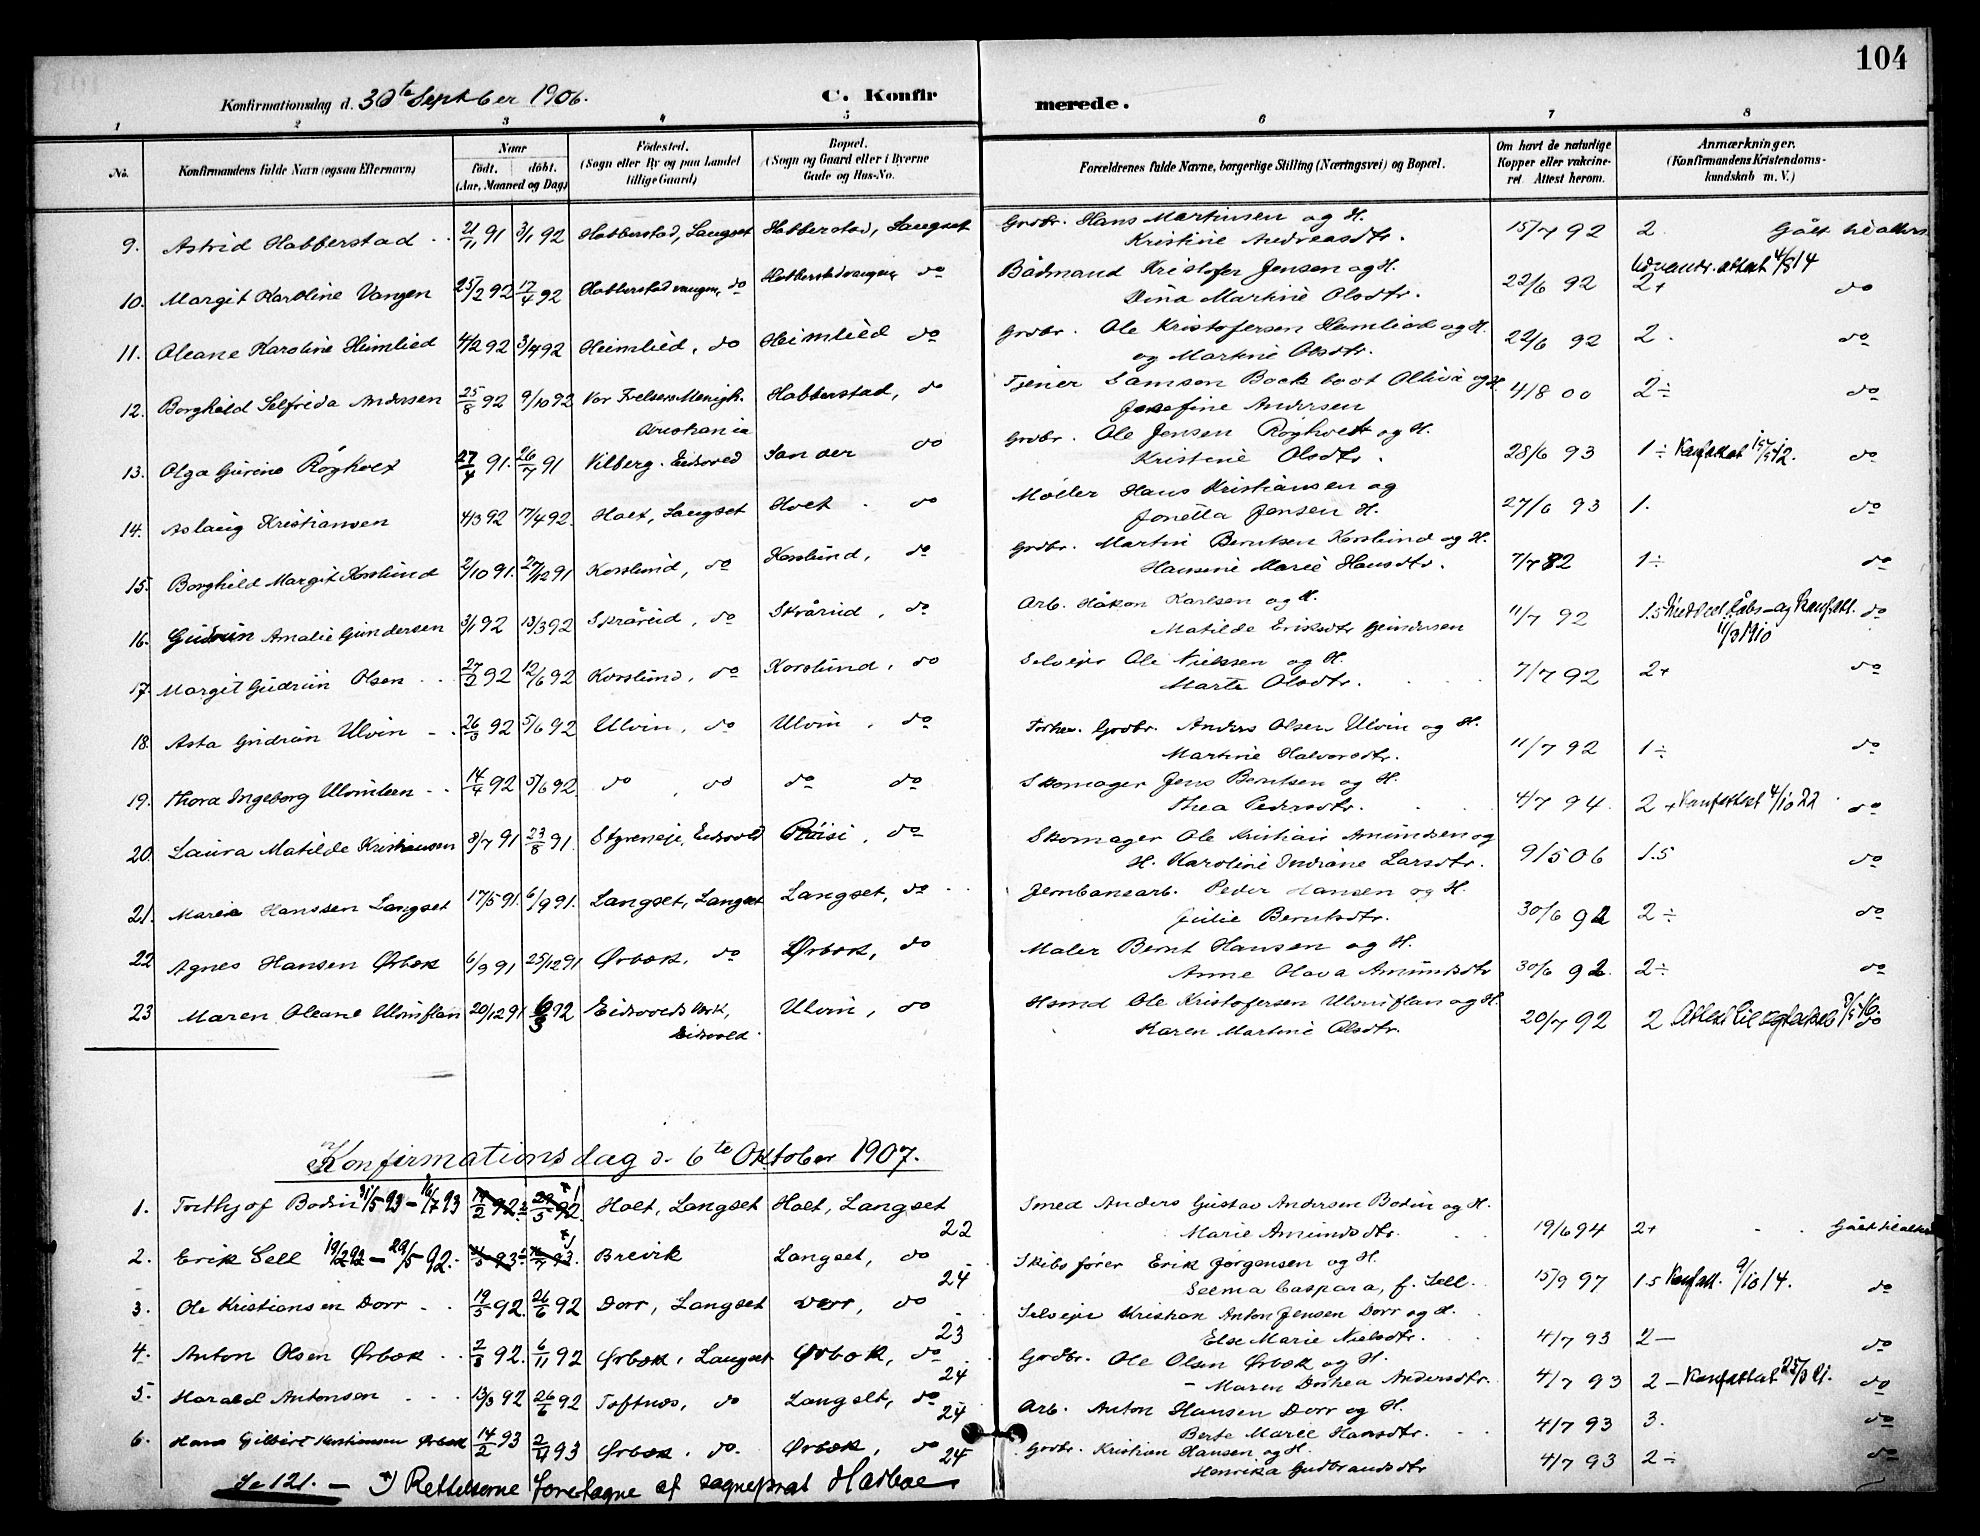 104
Konfirmationsdag d. 30te Septber 1906. C. Konfirmerede.
1 2 3 4 5 6 7 8
No. Konfirmandens fulde Navn (ogsaa Efternavn) Naar født. døbt. (Aar, Maaned og Dag) Fødested. (Sogn eller By og paa Landet tillige Gaard) Bopæl. (Sogn og Gaard eller i Byerne Gade og Hus-No. Forældrenes fulde Navne, borgerlige Stilling (Næringsvei) og Bopæl. Om havt de naturlige Kopper eller vakcineret. Attest herom. Anmærkninger. (Konfirmandens Kristendomskundskab m. V.)
9. Astrid Habberstad 21/11 91 3/1 92 Habberstad, Langset Habberstad, Langset Grdbr. Hans Martinsen og H. 15/7 92 2 Gået til alters
Kristine Andreasdtr.
10. Margit Karoline Vangen 25/2 92 17/4 92 Habberstadvangen, do Habberstadvangen do Bådmand Kristofer Jensen og H. 22/6 92 2+ Udvandr. attest 4/5 14 do
Dina Martine Olsdtr.
11. Oleane Karoline Heimlied 4/2 92 3/4 92 Heimlied, do Heimlied do Grdbr. Ole Kristofersen Heimlied og H. 22/6 92 2. do
og Martine Olsdtr.
12. Borghild Selfrida Andersen 25/8 92 9/10 92 Vor Frelsers Menigh. Kristiania Habberstad, do Tjener Samson Bock og H. 4/8 00 2÷ do
Josefine Andersen
13. Olga Gurine Røgholt 27/4 91. 26/7 91 Vilberg. Eidsvold Sander do Grdbr. Ole Jensen Røgholt og H. 28/6 93 1÷ do
Kristine Olsdtr.
14. Aslaug Kristiansen 4/3 92 17/4 92. Holt, Langset Holt. do Møller Hans Kristiansen og 27/6 93 1. do
Jonetta Jensen H.
15. Borghild Margit Korslund 2/10 91. 27/12 91 Korslund, do Korslund, do Grdbr. Martin Berntsen Korslund og H. 7/7 82 1÷ do
Hansine Marie Hansdtr.
16. Gudrun Amalie Gundersen 3/1 92 13/3 92 Skrårud, do Skrårud, do Arb. Håkon Karlsen og H. 11/7 92 1.5 do
Matilde Eriksdtr Gundersen
17. Margit Gudrun Olsen 27/2 92 12/6 92 Korslund, do Korslund, do Selveier Ole Nielsen og H. 7/7 92 2+ do
Marte Olsdtr.
18. Asta Gudrun Ulvin 26/3 92 5/6 92 Ulvin, do Ulvin, do Forhen. Grdbr. Anders Olsen Ulvin og H. 11/7 92 1÷ do
Martine Halvorsdtr.
19. Thora Ingeborg Ulvinleen 14/4 92 5/6 92. do, do do do Skomager Jens Berntsen og H. 4/7 94. 2+ Konfattest 4/10 22 do
Thea Pedersdtr.
20. Laura Matilde Kristiansen 3/7 91 23/8 91. Styreneie, Eidsvold Røisi, do Skomager Ole Kristian Amundsen og 9/5 06 1.5 do
H. Karoline Indiane Larsdtr.
21. Maria Hanssen Langset 17/5 91. 6/9 91. Langset, Langset Langset, do Jernbanearb. Peder Hansen og H. 30/6 92 2÷ do
Julie Berntsdtr.
22 Agnes Hansen Ørbæk 6/9 91 25/12 91 Ørbæk, do Ørbæk, do Maler Bernt Hansen og H. 30/6 92. 2÷ do
Anne Olava Amundsdtr
23 Maren Oleane Ulvinflan 20/12 91 6/3 92 Eidsvolds Verk, Eidsvold. Ulvin, do Hsmd Ole Kristofersen Ulvinflan og H. 20/7 92 2 do
Karen Martine Olsdtr.
Konfirmationsdag d. 6te Oktober 1907.
1. Forthjof Bodin 31/5 93 – 16/7 93 Holt, Langset Holt, Langset 22 Smed Anders Gustav Andersen Bodin og H. 19/6 94 2+ Gået til alters
Marie Amundsdtr.
2. Erik Sell 19/2 92 – 29/5 92. Brevik Langset, do 24 Skibsfører Erik Jørgensen og H. 15/9 97 1.5 Konfatt. 9/10 14. do
Selma Caspara, f. Sell.
3. Ole Kristiansen Dorr 19/5 92. 26/6 92 Dorr, Langset Dorr, do 23 Selveier Kristian Anton Jensen Dorr og H. 4/7 93 2— do
Else Marie Nielsdtr.
4. Anton Olsen Ørbæk 2/8 92. 6/11 92 Ørbæk, Langset Ørbæk, do 24 Grdbr. Ole Olsen Ørbæk og H. 4/7 93 2— do
Maren Dorthea Andersdtr.
5. Harald Antonsen 13/3 92 26/6 92 Toftnæs, do Langset, do 24 Arb. Anton Hansen Dorr og H. 4/7 93 3. do
Berte Marie Hansdtr.
6. Hans Gilbert Kristiansen Ørbæk 14/2 93 2/4 93 Ørbæk. do. Ørbæk, do 24 Grdbr. Kristian Hansen og H. 4/7 93 2÷ do
Henrika Gudbrandsdtr
Se 121. — x) Rettelserne foretagne af sogneprest Hasboe